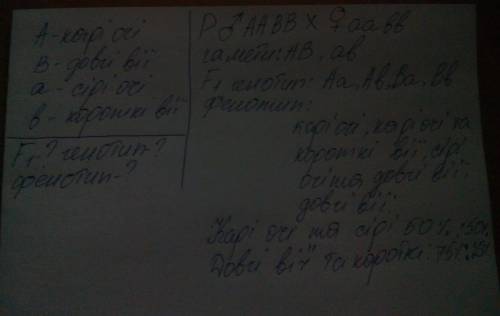 А - карі очі
В - довгі вії
а - сірі очі
в - короткі вії
F₁ - ? генотип ?
фенотип - ?
Р ♂ААВВ х ♀аавв
гамети: АВ, ав
F₁ генотип: Аа, Ав, Ва, Вв
фенотип:
карі очі, карі очі та
короткі вії, сірі
очі та довгі вії,
довгі вії.
Карі очі та сірі 50% : 50%
Довгі вії та короткі: 75% : 25%